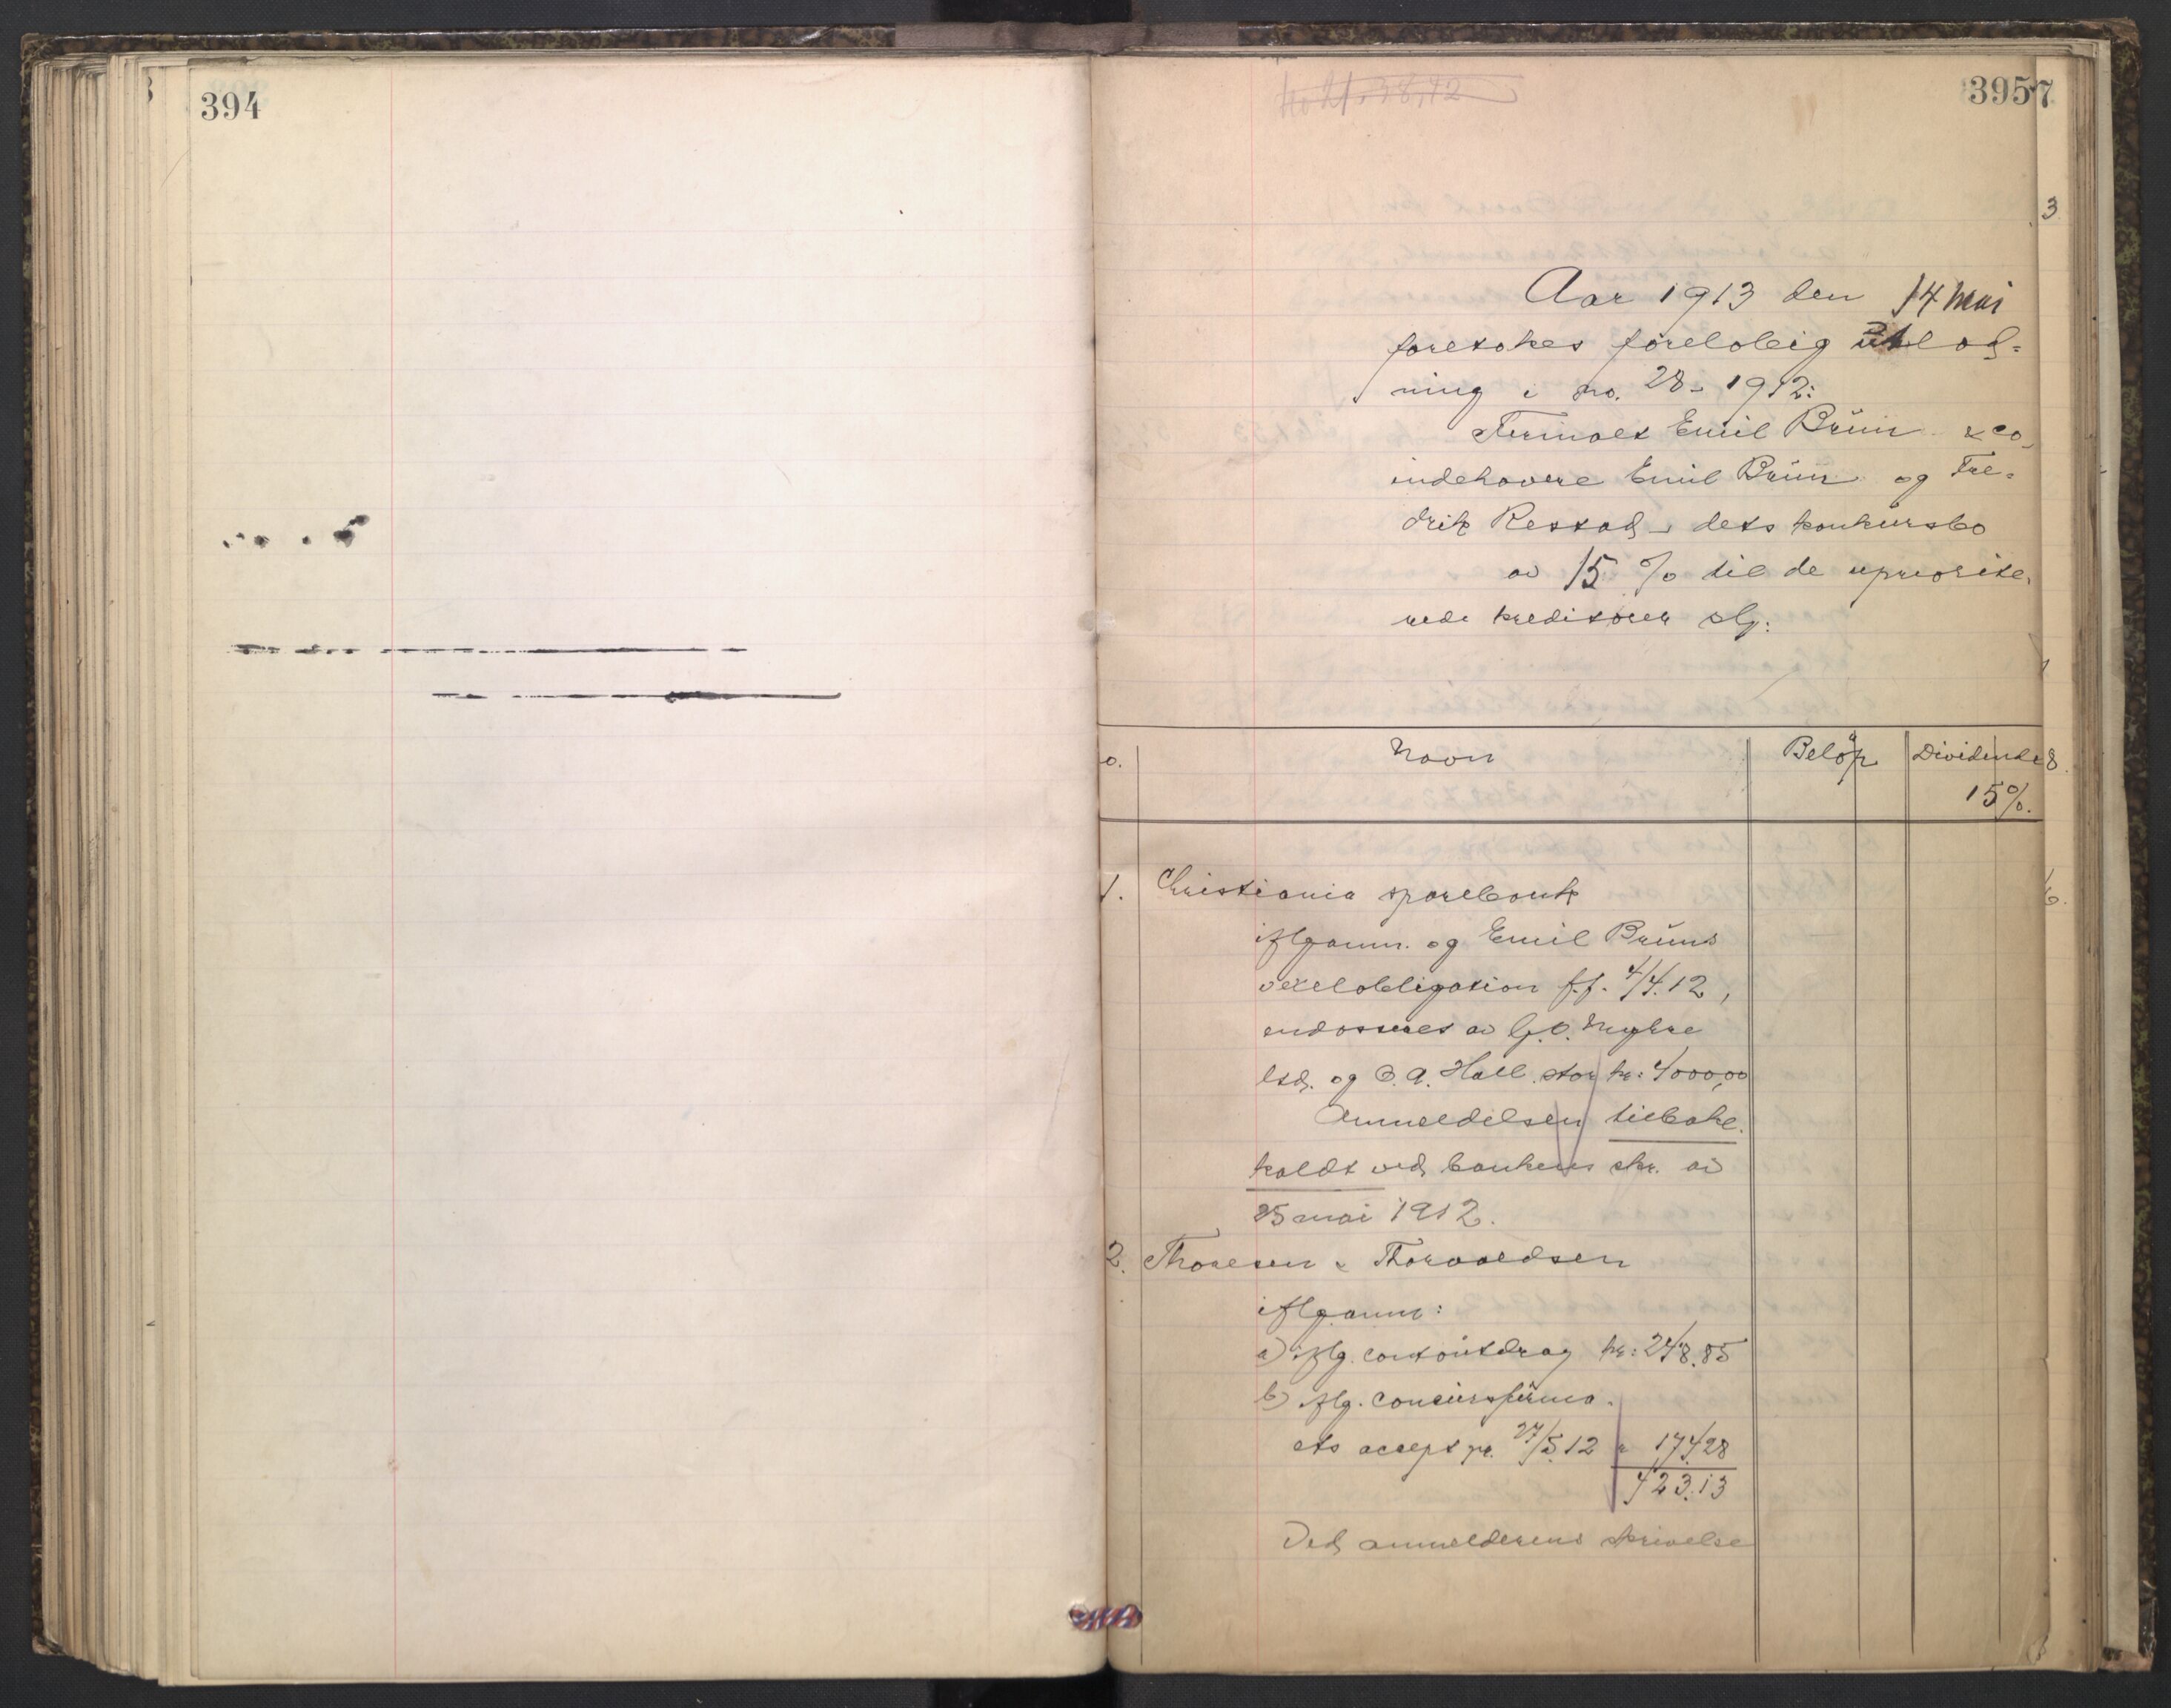 394
395
7
3
Aar 1913 den 14 mai
foretokes foreløbig utlod=
ning i no. 28 - 1912:
Firmaet Emil Brun & co
indehavere Emil Brun og Fre=
drik Restad, dets konkursbo
av 15 % til de uprorite,
rede kreditorer slg:
o. Navn Beløp Dividende
15%.
8.
1. Christiania sparebank
iflg anm. og Emil Bruns
vexelobligation f.f. 4/4.12,
endosseret av G.O. Myhre
ltd. og C.A. Hall stor kr: 4000,00
Anmeldelsen tilbake.
kaldt ved bankens skr. av
25 mai 1912.
2. Thoresen & Thorvaldsen
iflg anm:
a) iflg. contoutdrag kr: 248.85
b) iflg. concursfirma.
ets accept pr. 27/5.12 " 174.28
423.13
Ved anmelderens skrivelse